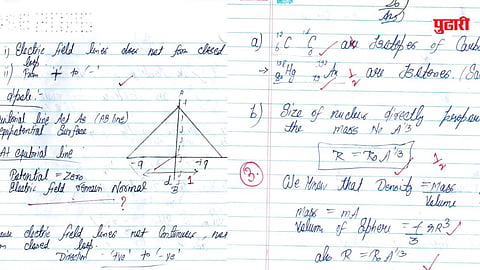 i) Electric field lines does not form closed
loop
ii) from + to (-)
dipole:-
equatorial line Act As (AB line)
equipotential Surface
At equitorial line
Potential = Zero
Electric field remain Normal
?
A
-q
+q
d
B
1
electric field lines not continuous, not
closed loop
Direction - '+ve' to '-ve'
पुढारी
Ans
a) 12 C 14 C are Isotopes of Carbon
6 6
Hg Au are Isotones
1/2
b) Size of nucleus directly
the mass No A^1/3
R = R₀ A^1/3
1/2
3.
We know that Density = Mass
Volume
mass = mA
Volume of Sphere = 4/3 πR³
also R = R₀ A^1/3